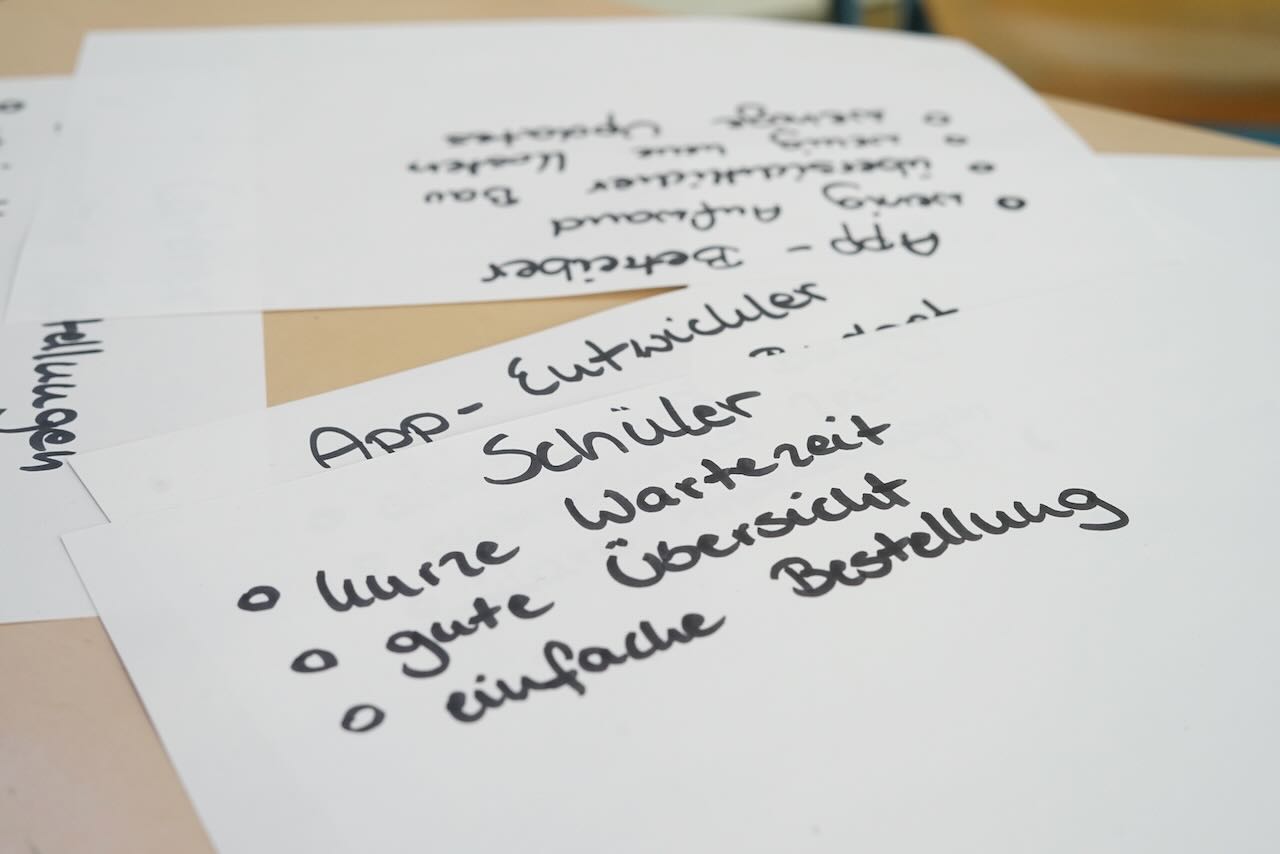 App - Betreiber
wenig Aufwand
übersichtlicher Bau
wenig neue Kosten
wenige Updates
App - Entwickler
Schüler
kurze Wartezeit
gute Übersicht
einfache Bestellung
tellungen